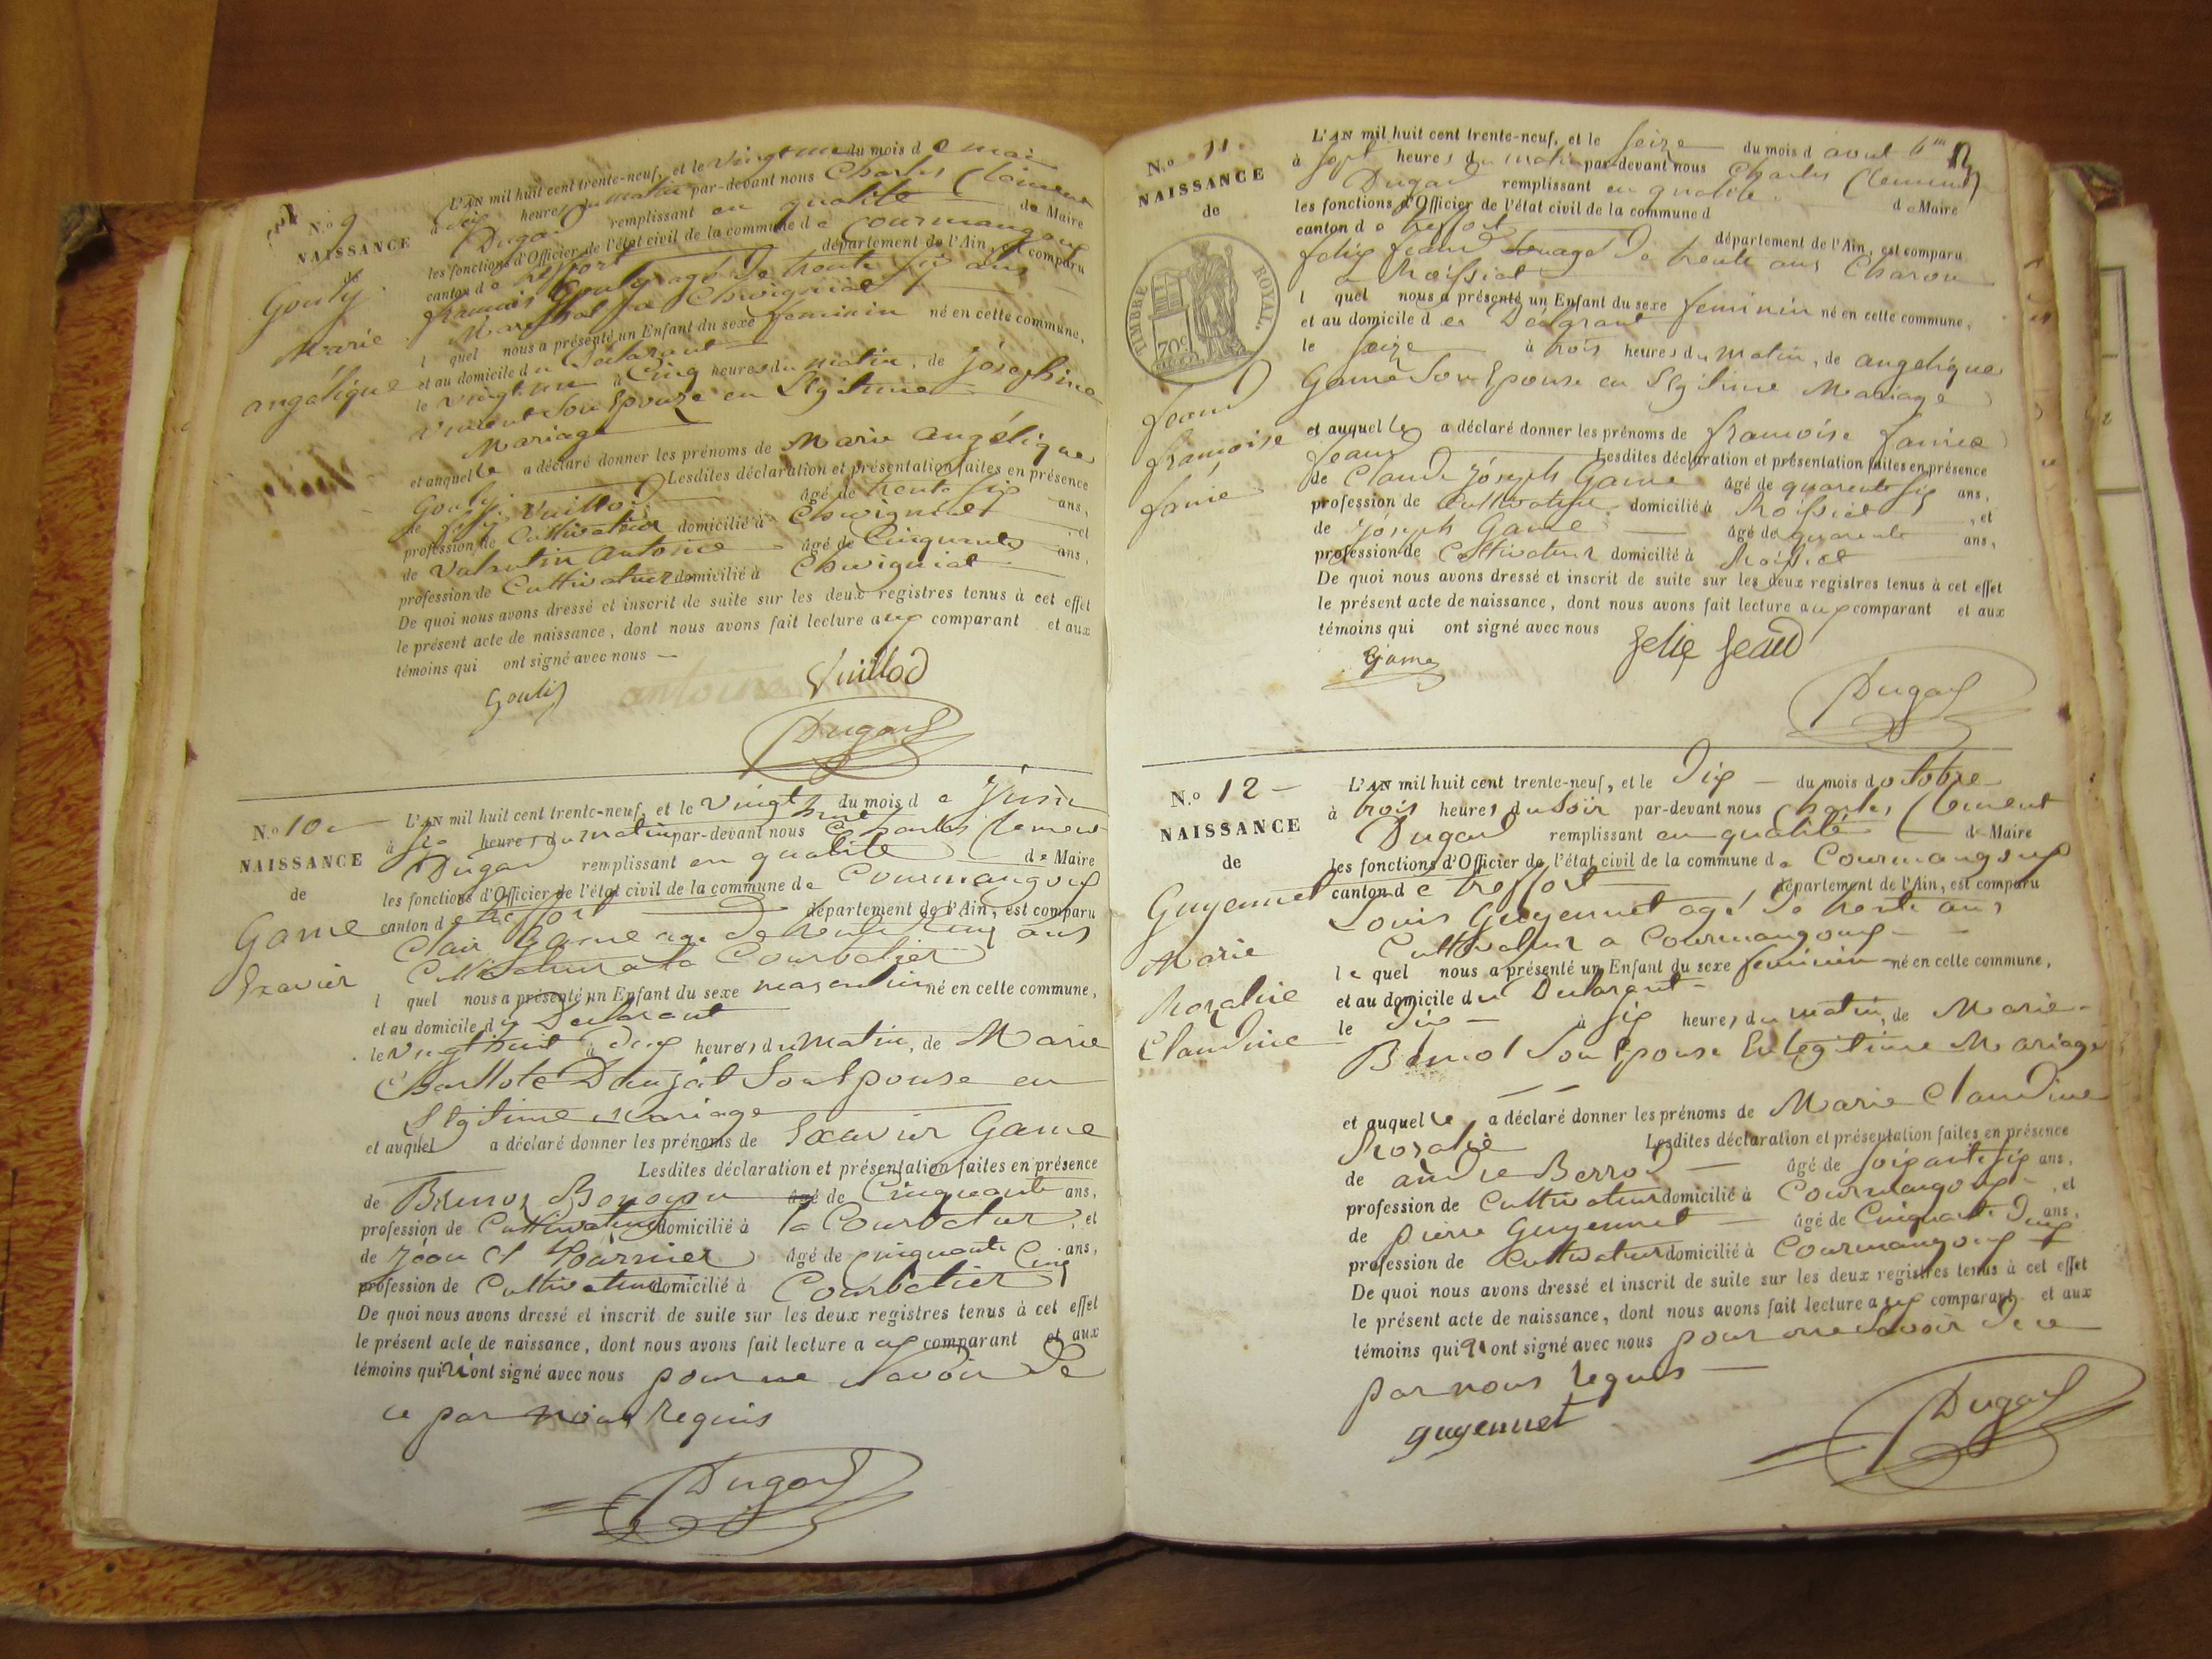 N.o 9
NAISSANCE
de
Gouly
Marie
angélique
L'AN mil huit cent trente-neuf, et le vingt un du mois de mai
à dix heures du matin par-devant nous Charles Clement
Dugad remplissant en qualité de Maire
les fonctions d'Officier de l'état civil de la commune de Courmangoux
canton de treffort département de l'Ain, est comparu
francois Gouly agé de trente six ans
Marechal a Chevigniat
l quel nous a présenté un Enfant du sexe feminin né en cette commune,
et au domicile du Déclarant
le vingt un à Cinq heures du matin, de joséphine
son Epouze en légitime
Mariage
et auquel le a déclaré donner les prénoms de Marie angélique
Gouly. Lesdites déclaration et présentation faites en présence
de Vuillod âgé de trente six ans,
profession de Cultivateur domicilié à Chevigniat , et
de Valentin antoine âgé de Cinquante ans,
profession de Cultivateur domicilié à Chevigniat
De quoi nous avons dressé et inscrit de suite sur les deux registres tenus à cet effet
le présent acte de naissance, dont nous avons fait lecture aux comparant et aux
témoins qui ont signé avec nous —
Gouly antoine Vuillod
Dugad
N.o 10
NAISSANCE
de
Game
Exavier
L'AN mil huit cent trente-neuf, et le vingt huit du mois de juin
à six heures du matin par-devant nous Charles Clement
Dugad remplissant en qualité de Maire
les fonctions d'Officier de l'état civil de la commune de Courmangoux
canton de treffort département de l'Ain, est comparu
Clair Game age de trente cinq ans
Cultivateur a la Courbatier
l quel nous a présenté un Enfant du sexe masculin né en cette commune,
et au domicile du Declarant
le vingt huit à deux heures du Matin, de Marie
Charllote Danjat son Epouse en
légitime Mariage
et auquel a déclaré donner les prénoms de Exavier Game
Lesdites déclaration et présentation faites en présence
de âgé de Cinquante ans,
profession de Cultivateur domicilié à la Courbatier , et
de fournier âgé de cinquante Cinq ans,
profession de Cultivateur domicilié à Courbatier
De quoi nous avons dressé et inscrit de suite sur les deux registres tenus à cet effet
le présent acte de naissance, dont nous avons fait lecture aux comparant et aux
témoins qui n'ont signé avec nous pour ne savoir De
ce par nous requis
Dugad
N.o 11
NAISSANCE
de
TIMBRE ROYAL.
70c
Jeaud
francoise
fanie
L'AN mil huit cent trente-neuf, et le seize du mois d aout
à sept heures du matin par-devant nous Charles Clement
Dugad remplissant en qualité de Maire
les fonctions d'Officier de l'état civil de la commune d
canton de treffort département de l'Ain, est comparu
felix Jeaud agé de trente ans Charon
a Roissiat
l quel nous a présenté un Enfant du sexe feminin né en cette commune,
et au domicile du Déclarant
le seize à trois heures du matin, de angelique
Game Son Epouse en légitime Mariage
et auquel le a déclaré donner les prénoms de francoise fanie
Jeaud Lesdites déclaration et présentation faites en présence
de Claude joséph Game âgé de quarente six ans,
profession de Cultivateur domicilié à Roissiat , et
de joseph Game âgé de quarente ans,
profession de Cultivateur domicilié à Roissiat
De quoi nous avons dressé et inscrit de suite sur les deux registres tenus à cet effet
le présent acte de naissance, dont nous avons fait lecture aux comparant et aux
témoins qui ont signé avec nous
Game felix Jeaud
Dugad
N.o 12
NAISSANCE
de
Guyennet
Marie
Rozalie
Claudine
L'AN mil huit cent trente-neuf, et le Dix du mois d octobre
à trois heures du soir par-devant nous Charles Clement
Dugad remplissant en qualité de Maire
les fonctions d'Officier de l'état civil de la commune de Courmangoux
canton de treffort département de l'Ain, est comparu
Louis Guyennet agé de trente ans
Cultivateur a Courmangoux
le quel nous a présenté un Enfant du sexe feminin né en cette commune,
et au domicile du Declarant
le Dix à six heures du matin, de Marie
Son Epouse En legitime Mariage
et auquel le a déclaré donner les prénoms de Marie Claudine
Rosalie Lesdites déclaration et présentation faites en présence
de andre Berrod âgé de soixante six ans,
profession de Cultivateur domicilié à Courmangoux , et
de pierre Guyennet âgé de Cinquante Deux ans,
profession de Cultivateur domicilié à Courmangoux
De quoi nous avons dressé et inscrit de suite sur les deux registres tenus à cet effet
le présent acte de naissance, dont nous avons fait lecture aux comparant et aux
témoins qui n'ont signé avec nous pour ne Savoir De ce
par nous requis
guyennet
Dugad